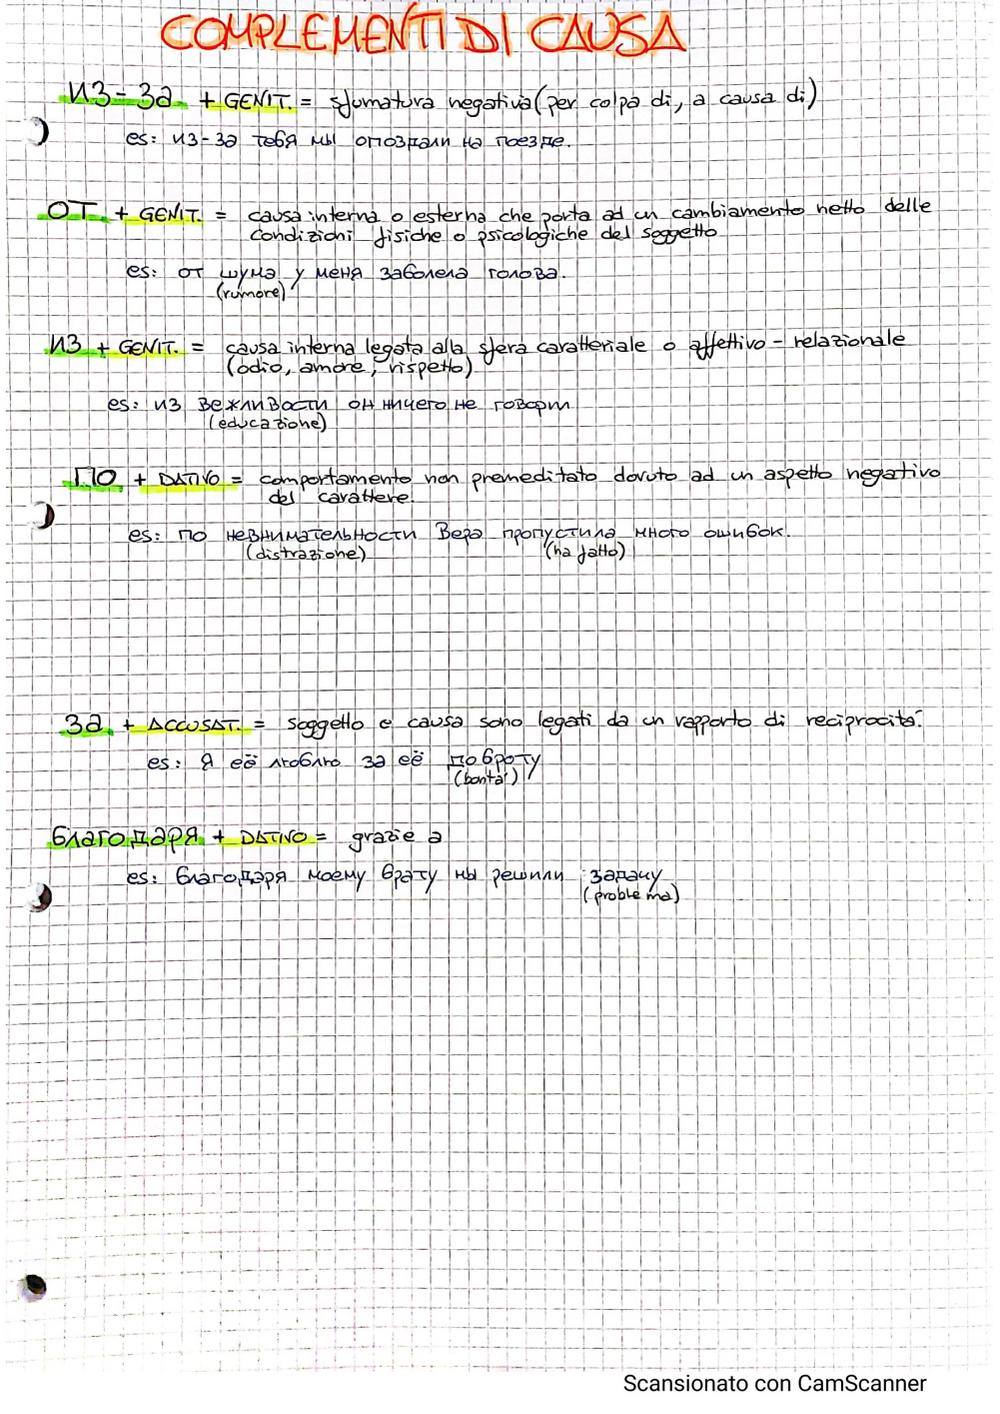 COMPLEMENTI DI CAUSA
ИЗ-За + GENIT. = sfumatura negativa (per colpa di, a causa di)
es: из-за тебя мы опоздали на поезде.
ОТ + GENIT. = causa interna o esterna che porta ad un cambiamento netto delle
condizioni fisiche o psicologiche del soggetto
es: от шума у меня заболела голова.
(rumore)
ИЗ + GENIT. = causa interna legata alla sfera caratteriale o affettivo-relazionale
(odio, amore, rispetto)
es: из вежливости он ничего не говорил
(educazione)
ПО + DATIVO = comportamento non premeditato dovuto ad un aspetto negativo
del carattere.
es: по невнимательности Вера пропустила много ошибок.
(distrazione) (ha fatto)
За + ACCUSAT. = soggetto e causa sono legati da un rapporto di reciprocità.
es: Я её люблю за её доброту
(bontà)
благодаря + DATIVO = grazie a
es: благодаря моему брату мы решили задачу
(problema)
Scansionato con CamScanner